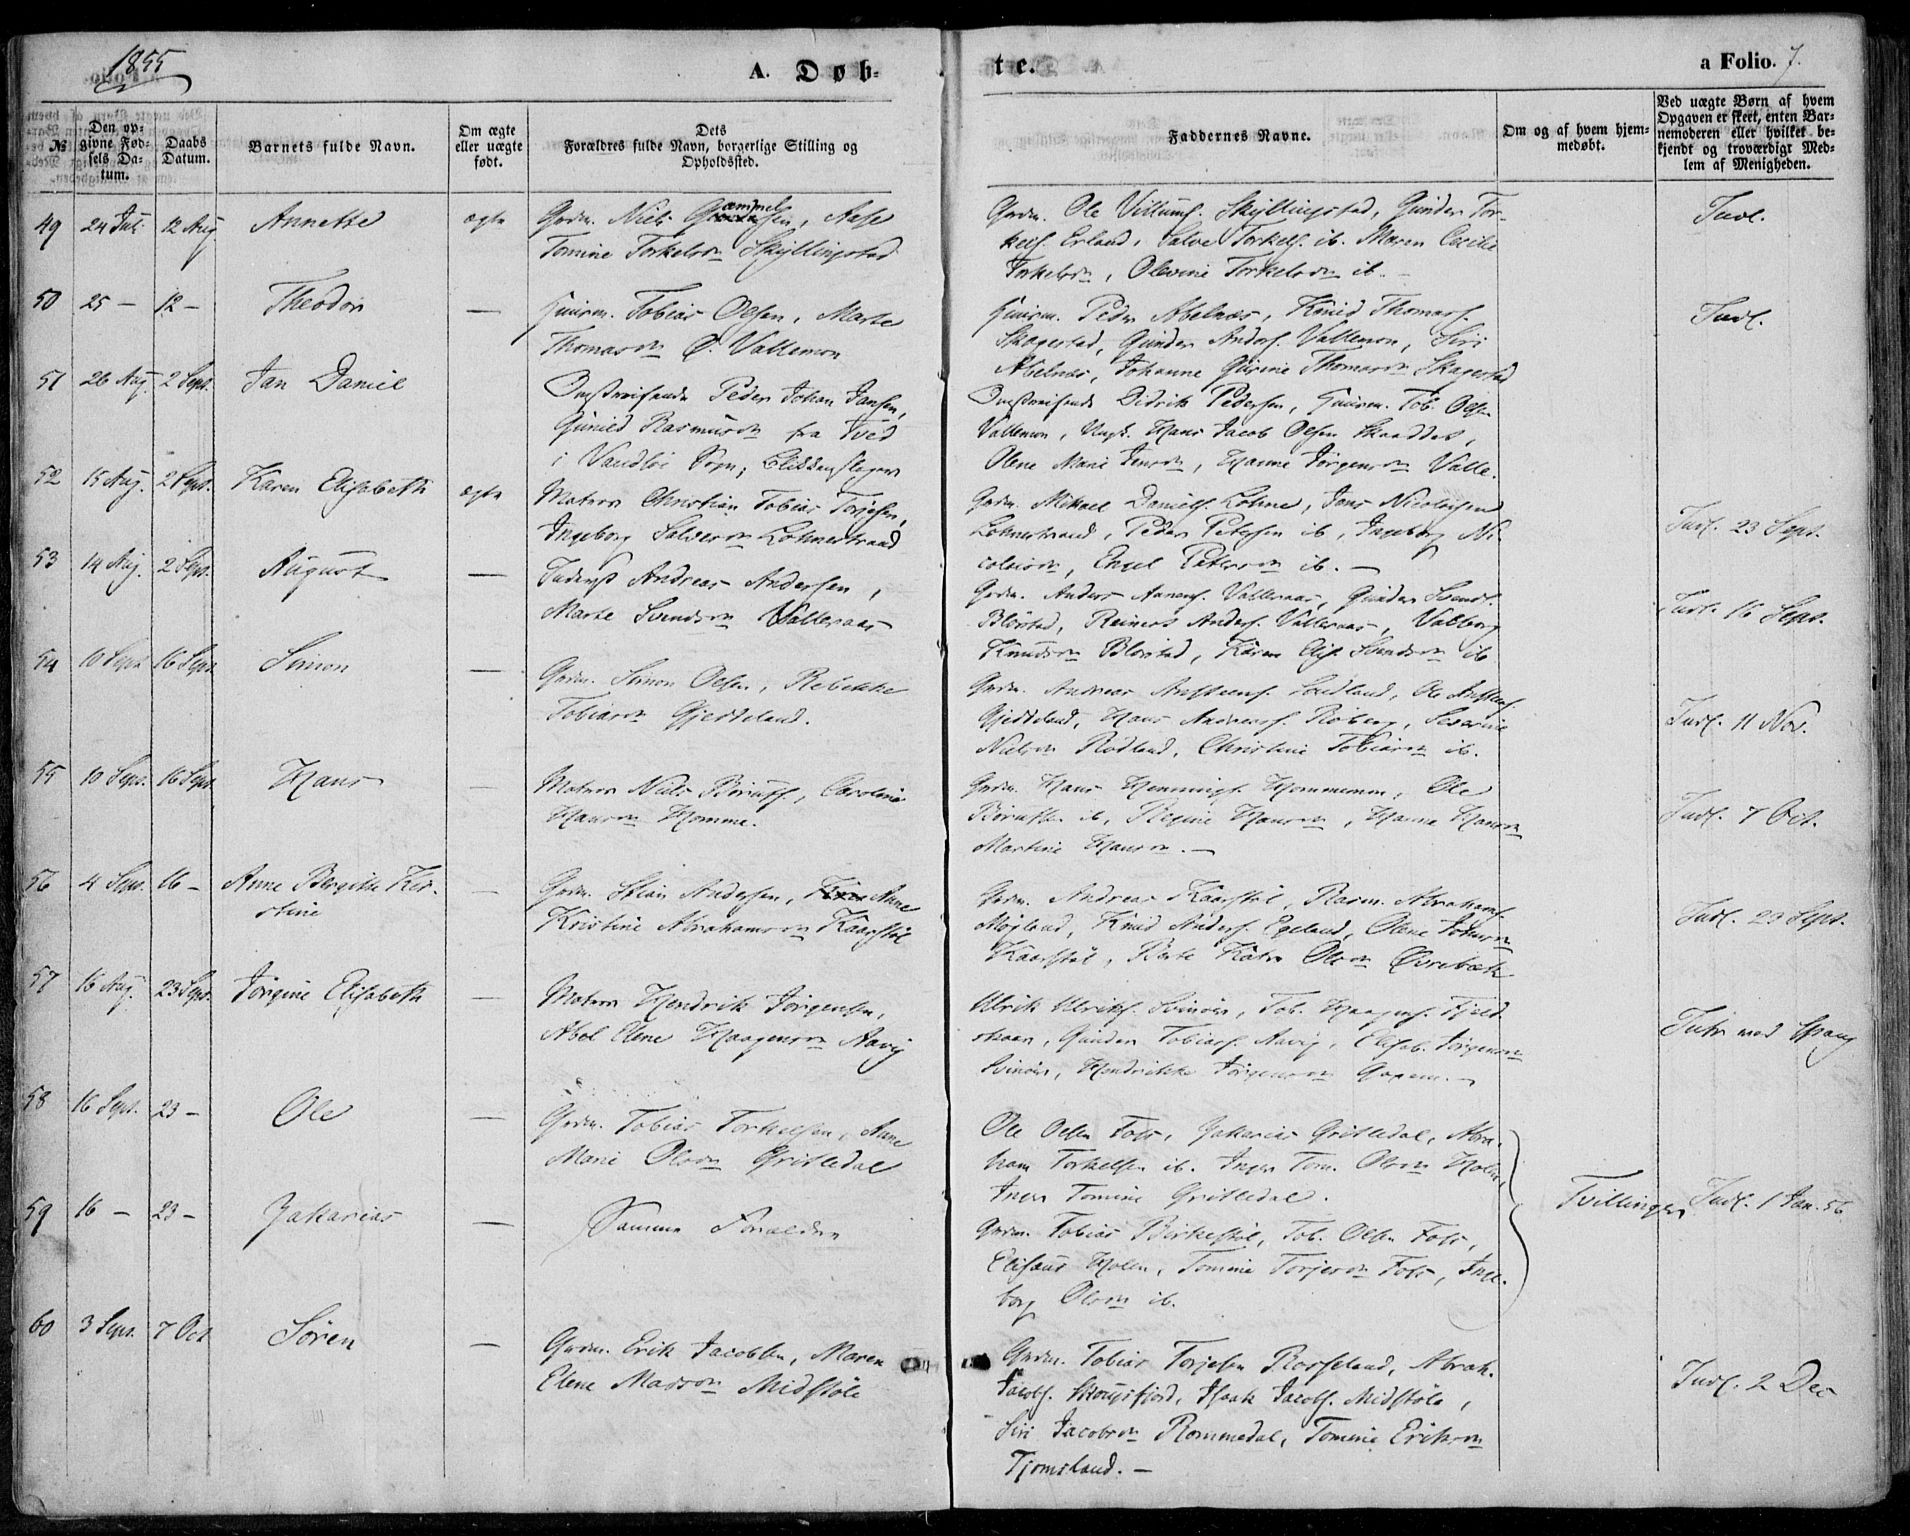 1855
A. Døb-
te.
a Folio. 7.
№
Den op-
givne Fød-
sels Da-
tum.
Daabs
Datum.
Barnets fulde Navn.
Om ægte
eller uægte
født.
Dets
Forældres fulde Navn, borgerlige Stilling og
Opholdssted.
Faddernes Navne.
Om og af hvem hjem-
medøbt.
Ved uægte Børn af hvem
Opgaven er skeet, enten Bar-
nemoderen eller hvilket be-
kjendt og troværdigt Med-
lem af Menigheden.
49 24 Jul. 12 Aug Annette ægte Grdm. Niels Gammelsen, Aase
Tomine Torkelsdn Skyllingstad
Grdm. Ole Villums. Skyllingstad, Gunder Tor-
kels. Erland, Salve Torkels. ib. Maren Cecilie
Torkelsdn, Olevine Torkelsdn ib. -
Indl.
50 25 - 12 - Theodor — Huusm. Tobias Olsen, Marte
Thomasdn Ø. Vallemon
Huusm. Peder Abelnæs, Knud Thomass.
Skagestad, Gunder Anders. Vallemon, Siri
Abelnæs, Johanne Gurine Thomasdn Skagestad
Indl.
51 26 Aug. 2 Sept. Jan Daniel Omstreifende Peder Johan Jansen,
Gunild Rasmusdn fra Tved
i Sogn,
Omstreifende Didrik Pedersen, Huusm. Tob. Olsen
Vallemon, Ungk. Hans Jacob Olsen
Olene Marie Jensdn, Hanne Jørgensdn Valle.
52 15 Aug. 2 Sept. Karen Elisabeth ægte Matros Christian Tobias Torjesen,
Ingeborg Salvesdn Lohnestrand
Grdm. Mikael Daniels. Lohne, Jens Nicolaisen
Lohnestrand, Peder Petersen ib, Ingeborg Ni-
colaisdn, Engel Petersdn ib. —
Indl. 23 Sept.
53 14 Aug. 2 Sept. August — Inderst Andreas Andersen,
Marte Svendsdn Valleraas
Grdm. Anders Aanens. Valleraas, Gunder Svends.
Blørstad, Reinert Anders. Valleraas, Valborg
Knudsdn Blørstad, Karen Elis. Svendsdn ib
Indl. 16 Sept.
54 10 Sept. 16 Sept Simon — Grdm. Simon Olsen, Rebekke
Tobiasdn Gjeddeland.
Grdm. Andreas Ansteens. Sodland, Ole Anstens.
Gjeddeland, Hans Andreass. Roberg, Severine
Nielsdn Rodland, Christine Tobiasdn ib.
Indl. 11 Nov.
55 10 Sept. 16 Sept Hans — Matros Niels Børuss., Caroline
Hansdn Homme.
Grdm. Hans Hennings. Hommemm, Ole
ib, Regine Hansdn, Hanne Hansdn
Martine Hansdn. —
Indl. 7 Oct.
56 4 Sept. 16 - Anne Bergitte Kir-
stine — Grdm. Stian Andersen, Anne
Kristine Abrahamsdn Kaarstøl
Grdm. Andreas Kaarstøl, Rasm. Abrahams.
Møgland, Knud Anders. Egeland, Olene Johnsdn
Kaarstøl, Berte Katr. Olsdn Øvrebæk.
Indl. 23 Sept.
57 16 Aug. 23 Sept. Jørgine Elisabeth — Matros Hendrik Jørgensen,
Abel Elene Haagensdn Aavig
Ulrik Ulriks. Svinøer, Tob. Haagens. Fjeld-
skaar, Gunder Tobiass. Aavig, Elisab. Jørgensdn
Svinøer, Hendrikke Jørgensdn —
Intr. med Spang
58 16 Sept. 23 - Ole — Grdm. Tobias Torkelsen, Anne
Marie Olsdn Gristedal
Ole Olsen Foss, Zakarias Gristedal, Abra-
ham Torkelsen ib. Inger Tom. Olsdn Holen,
Inger Tomine Gristedal.
59 16 - 23 - Zakarias — Samme Forældre
Grdm. Tobias Birkestøl, Tob. Olsen Foss,
Elisæus Holen, Tomine Torjesdn Foss, Inge-
borg Olsdn ib.
Tvillinger Indl. 1 Jan. 56.
60 3 Sept. 7 Oct Søren — Grdm. Erik Jacobsen, Maren
Elene Madsdn Midstøle
Grdm. Tobias Torjesen Rosseland, Abrah.
Jacobs. Skougsfjord, Isaak Jacobs. Midstøle,
Siri Jacobsdn Rommedal, Tomine Eriksdn
Tjomsland. —
Indl. 2 Dec